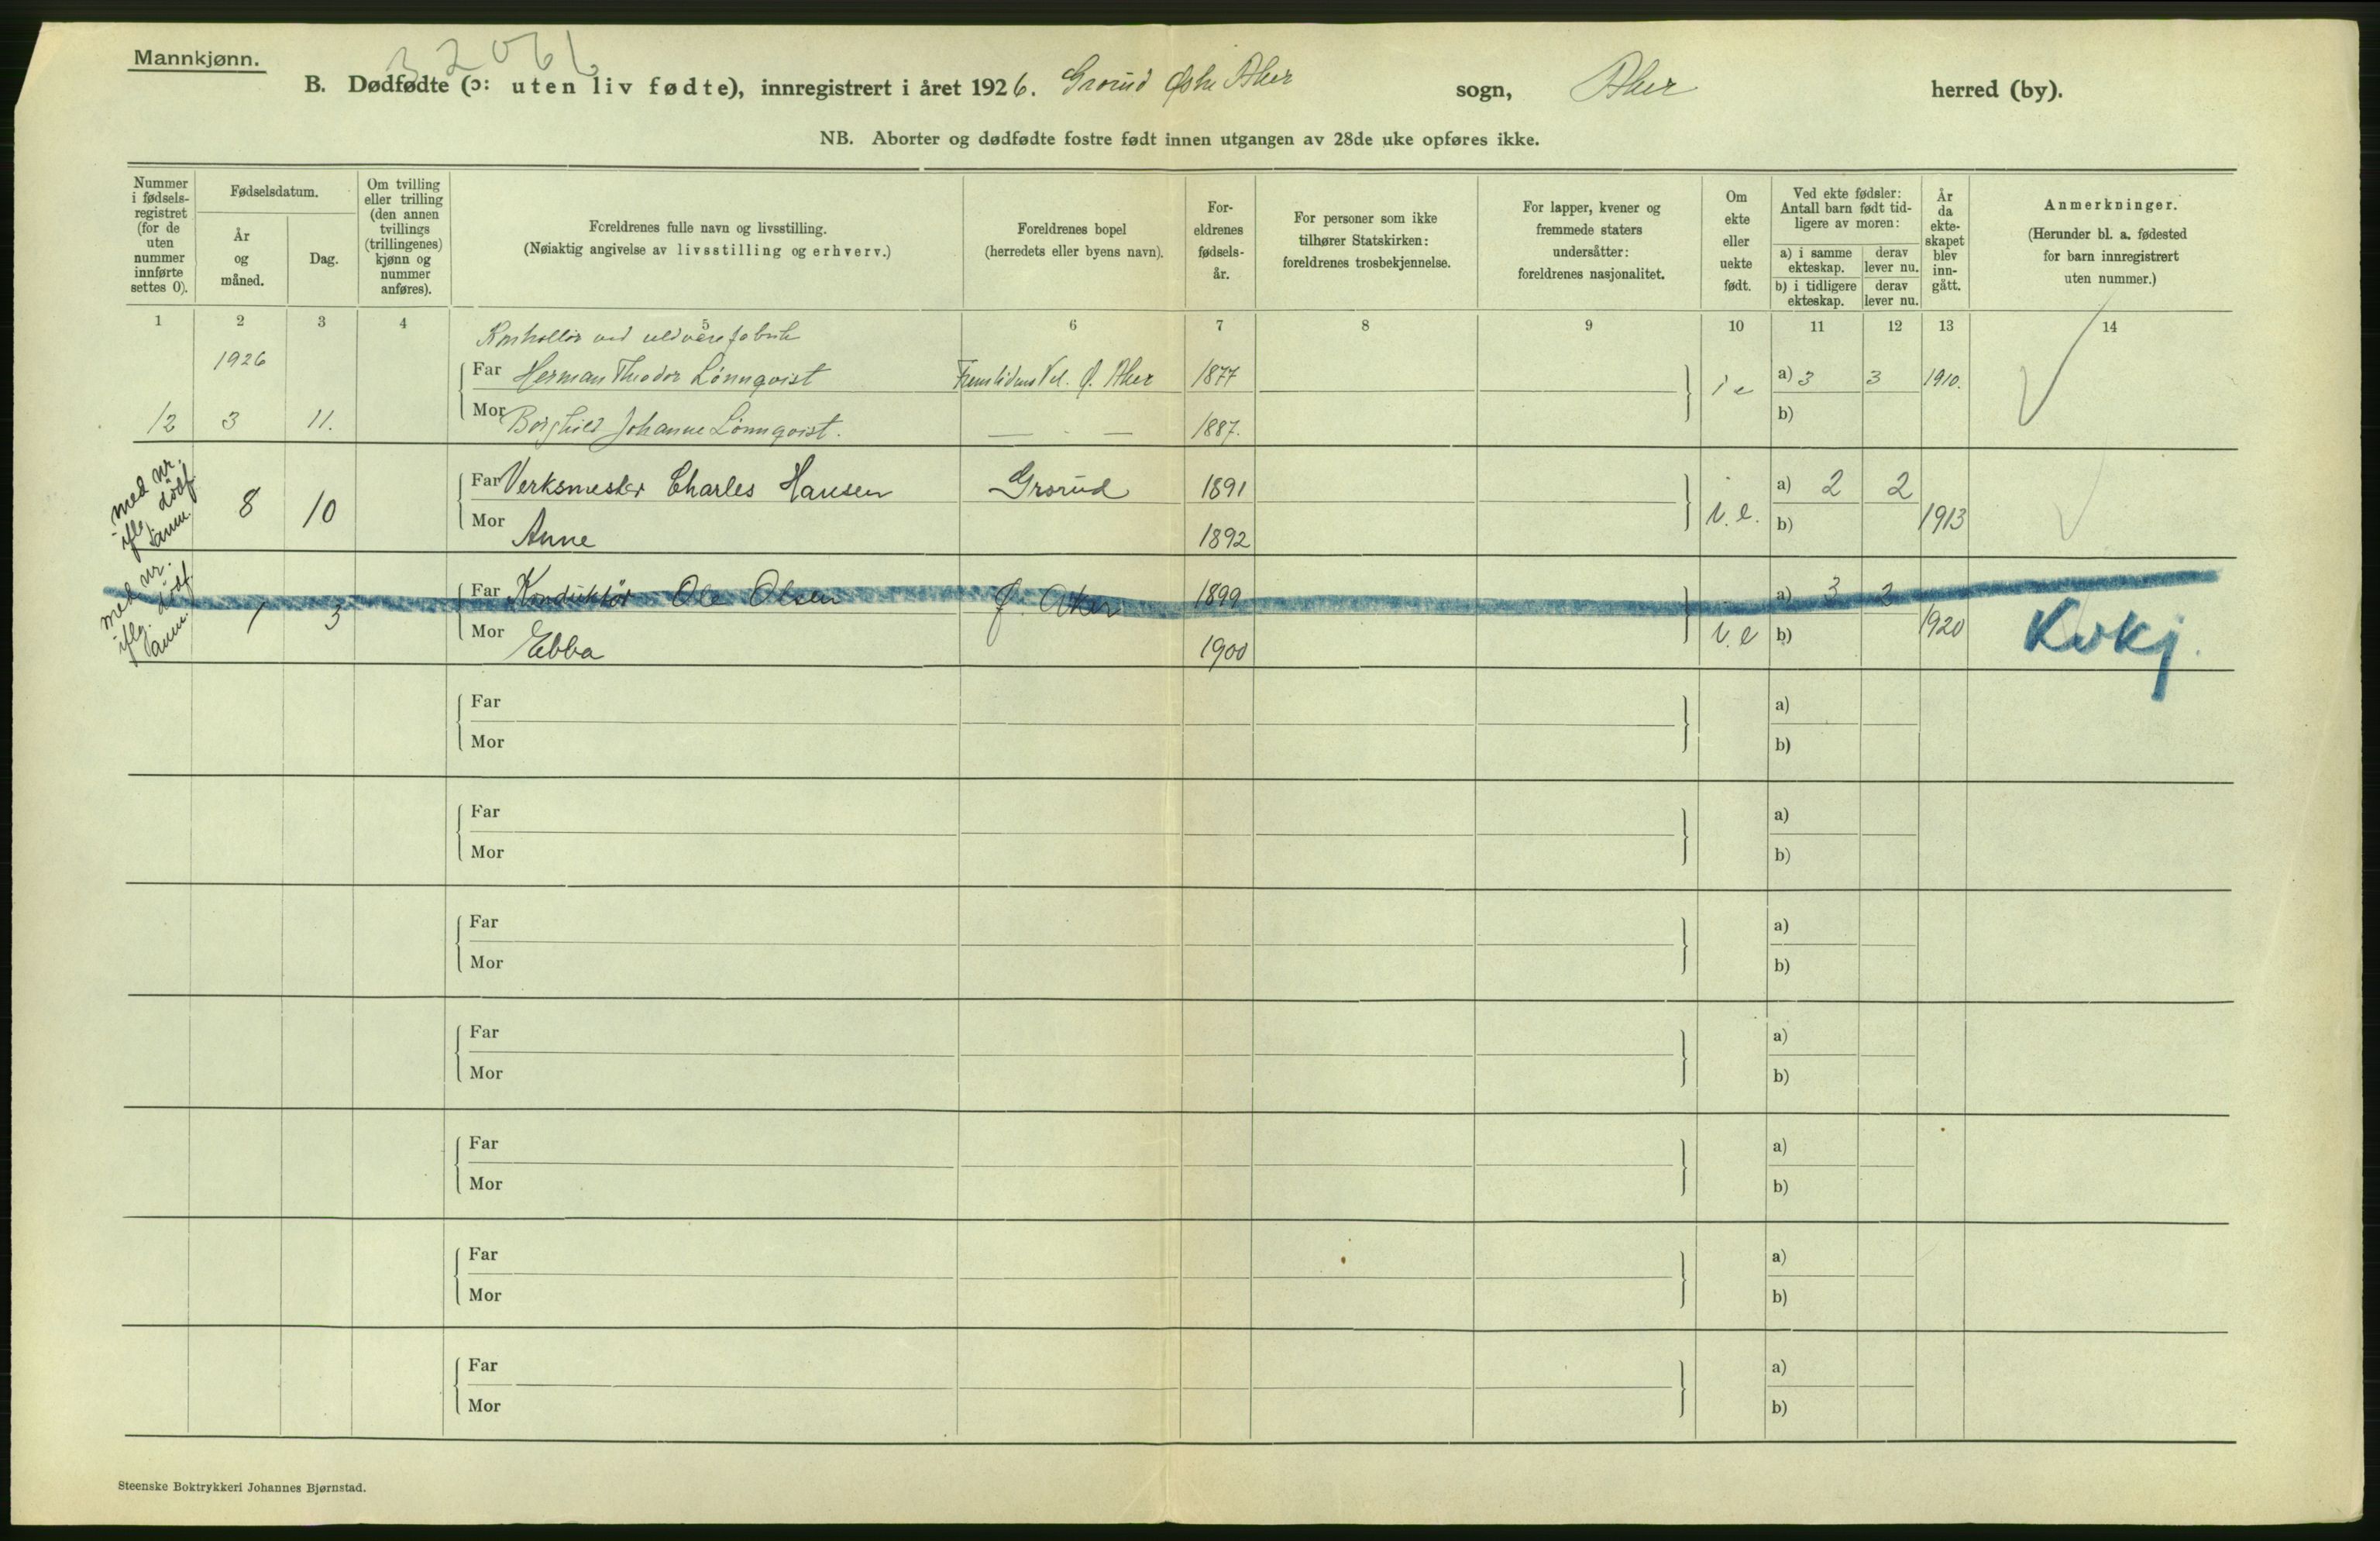 Mannkjønn.
32061
B. Dødfødte (ɔ: uten liv fødte), innregistrert i året 1926. Grorud Østre Aker sogn, Aker herred (by).
NB. Aborter og dødfødte fostre født innen utgangen av 28de uke opføres ikke.
Nummer i fødsels-registret (for de uten nummer innførte settes 0).
Fødselsdatum.
År og måned.
Dag.
Om tvilling eller trilling (den annen tvillings (trillingenes) kjønn og nummer anføres).
Foreldrenes fulle navn og livsstilling.
(Nøiaktig angivelse av livsstilling og erhverv.)
Foreldrenes bopel
(herredets eller byens navn).
For-eldrenes fødsels-år.
For personer som ikke tilhører Statskirken: foreldrenes trosbekjennelse.
For lapper, kvener og fremmede staters undersåtter: foreldrenes nasjonalitet.
Om ekte eller uekte født.
Ved ekte fødsler: Antall barn født tid-ligere av moren:
a) i samme ekteskap.
derav lever nu.
b) i tidligere ekteskap.
derav lever nu.
År da ekte-skapet blev inn-gått.
Anmerkninger.
(Herunder bl. a. fødested for barn innregistrert uten nummer.)
1 2 3 4 5 6 7 8 9 10 11 12 13 14
Kontrollør ved uldvarefabrik
1926 Far Herman Theodor Lönnqvist Fremtidens Vel. Ø. Aker 1877 i e a) 3 3 1910.
12 3 11. Mor Borghild Johanne Lönnqvist. — · — 1887. b)
med nr. iflg. dödf. anm.
8 10 Far Verksmester Charles Hansen Grorud 1891 i. e. a) 2 2 1913
Mor Anne 1892 b)
med nr. iflg. dödf. anm.
1 3 Far Konduktör Ole Olsen Ø. Aker 1899 i. e a) 3 2 1920
Mor Ebba 1900 b)
Kvkj.
Far a)
Mor b)
Far a)
Mor b)
Far a)
Mor b)
Far a)
Mor b)
Far a)
Mor b)
Far a)
Mor b)
Far a)
Mor b)
Steenske Boktrykkeri Johannes Bjørnstad.